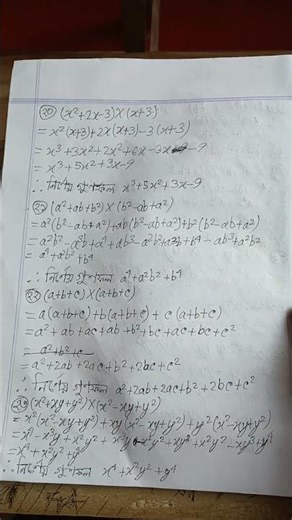 ২০ (x²+2x-3)×(x+3)
= x²(x+3)+2x(x+3)-3(x+3)
= x³+3x²+2x²+6x-3x-9
= x³+5x²+3x-9
∴ নির্ণেয় গুণফল x³+5x²+3x-9
২১ (a²+ab+b²)×(b²-ab+a²)
= a²(b²-ab+a²)+ab(b²-ab+a²)+b²(b²-ab+a²)
= a²b²-a³b+a⁴+ab³-a²b²+a³b+b⁴-ab³+a²b²
= a⁴+a²b²+b⁴
∴ নির্ণেয় গুণফল a⁴+a²b²+b⁴
২২ (a+b+c)×(a+b+c)
= a(a+b+c)+b(a+b+c)+c(a+b+c)
= a²+ab+ac+ab+b²+bc+ac+bc+c²
= a²+2ab+2ac+b²+2bc+c²
∴ নির্ণেয় গুণফল a²+2ab+2ac+b²+2bc+c²
(x²+xy+y²)×(x²-xy+y²)
= x²(x²-xy+y²)+xy(x²-xy+y²)+y²(x²-xy+y²)
∴ নির্ণেয় গুণফল x⁴+x²y²+y⁴